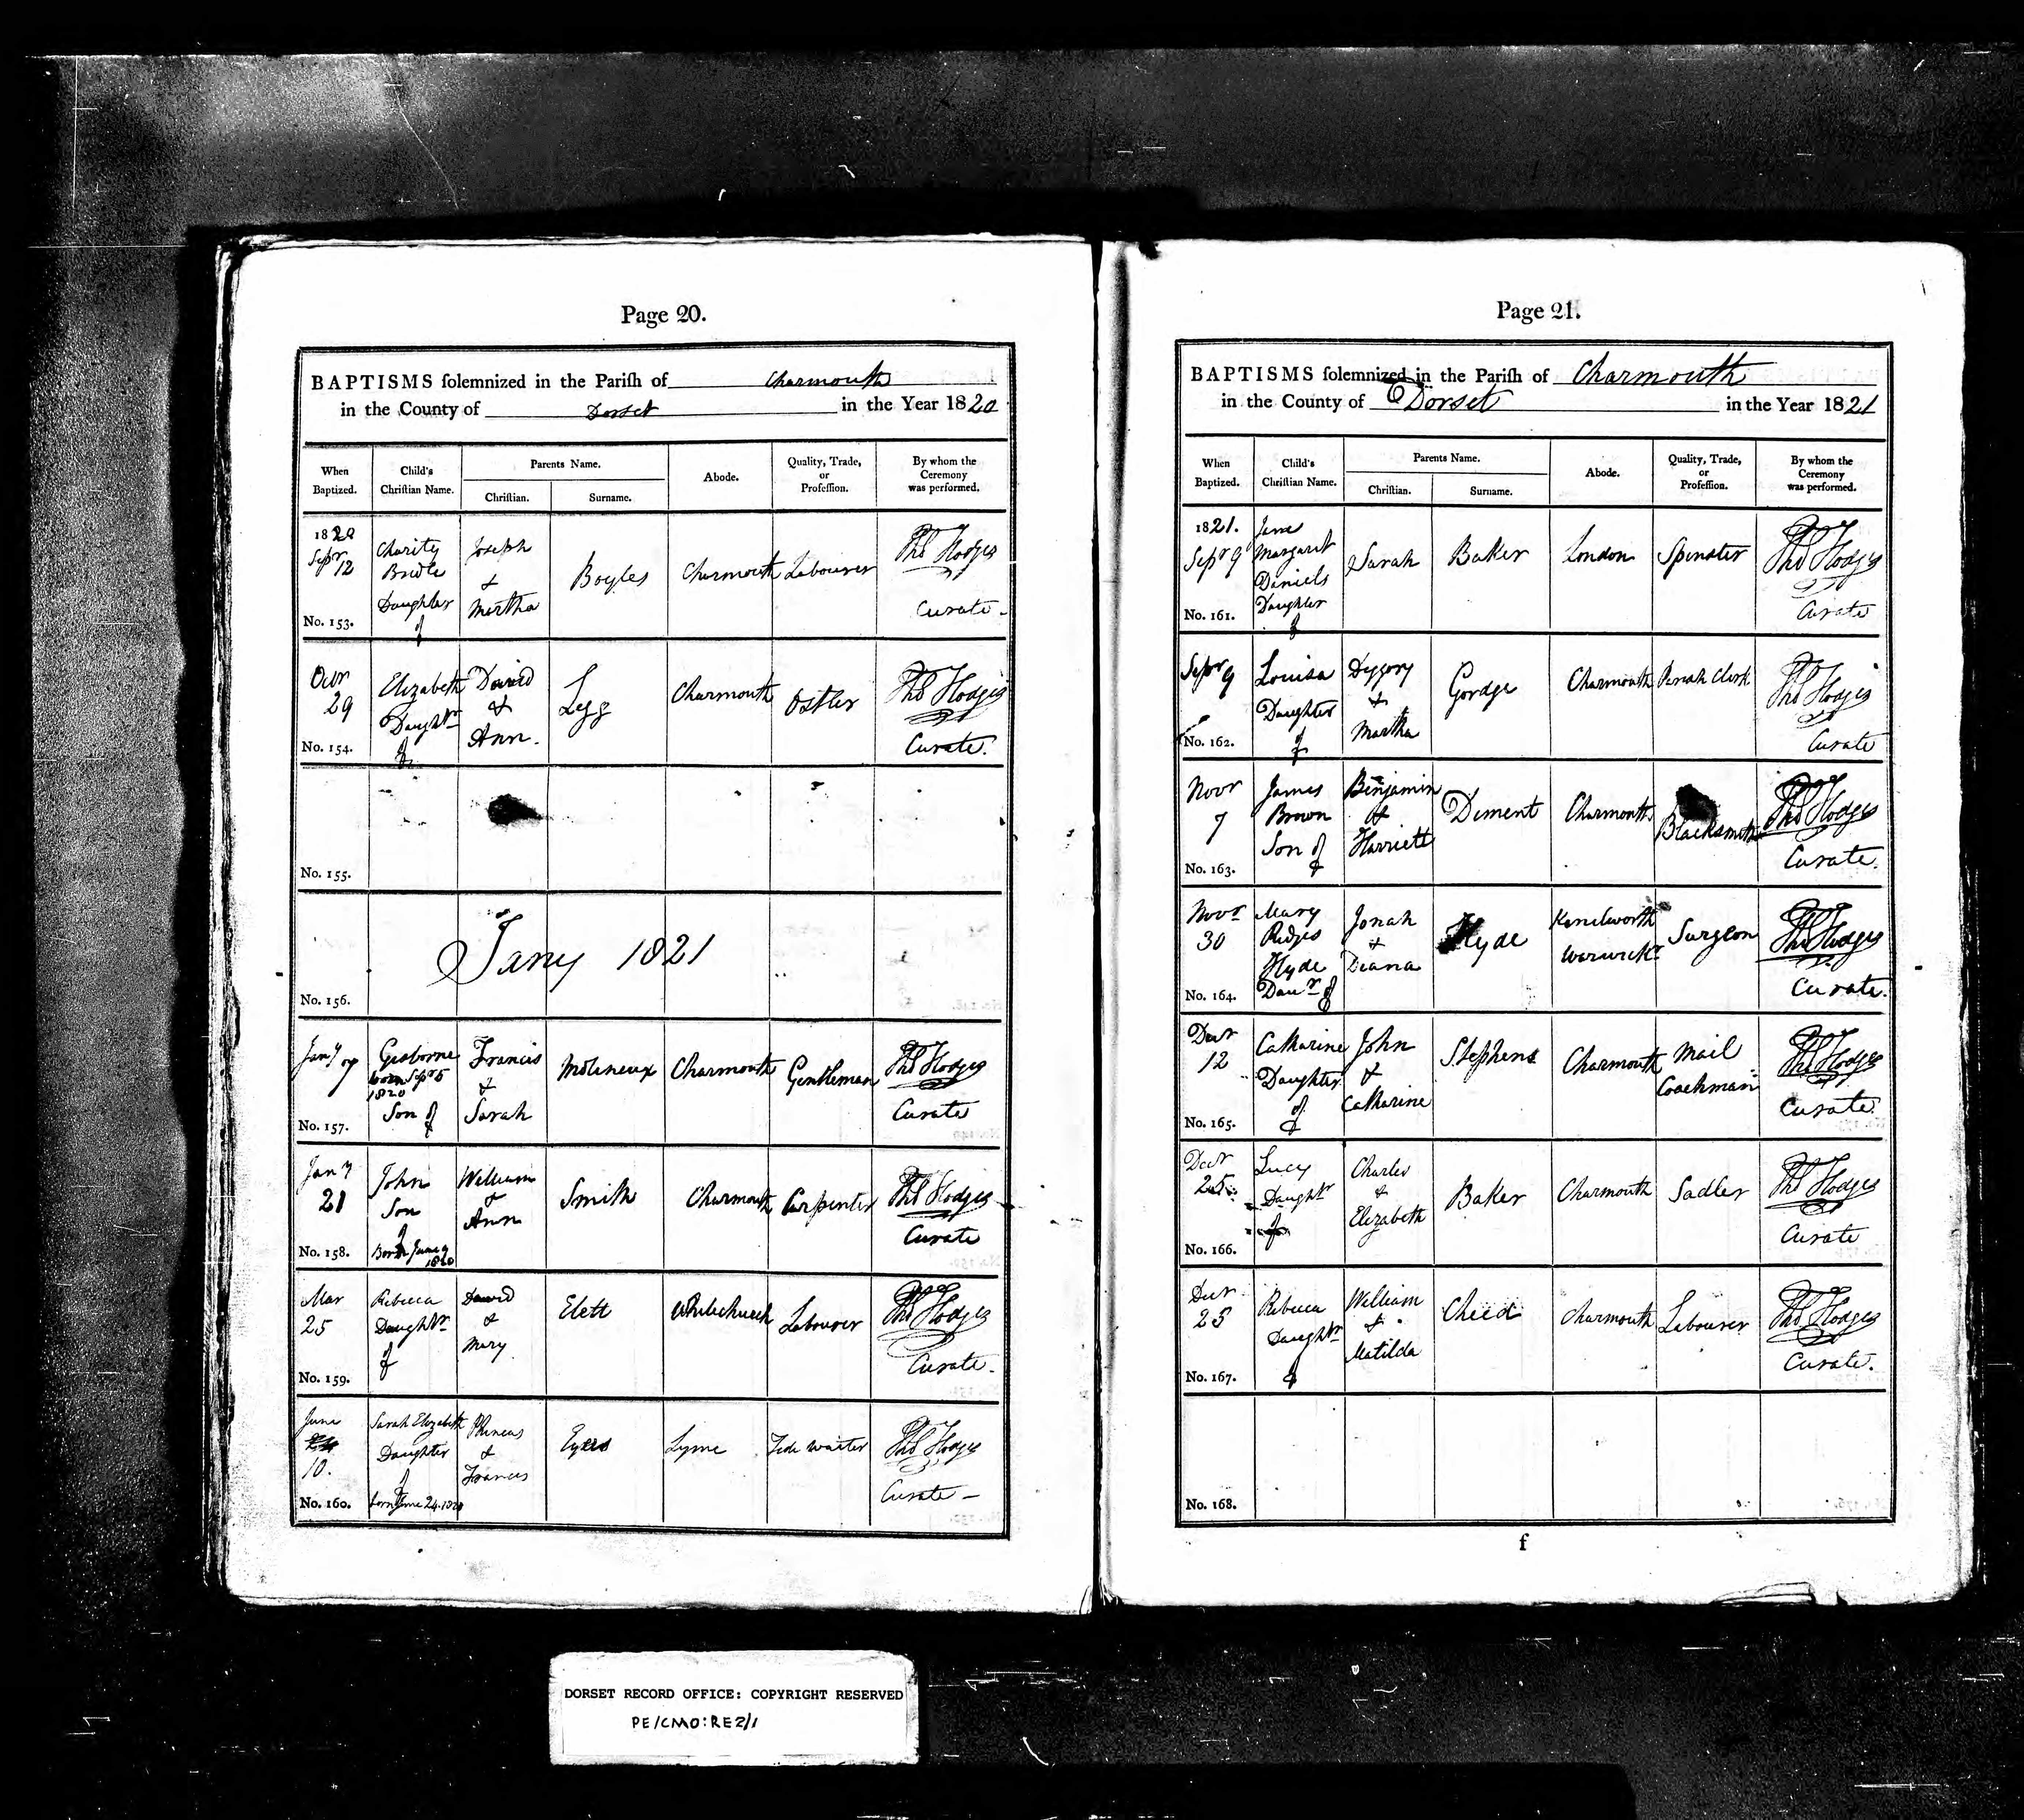 Page 20.
BAPTISMS solemnized in the Parish of Charmouth
in the County of Dorset in the Year 1820
When Baptized. Child's Christian Name. Parents Name. Christian. Surname. Abode. Quality, Trade, or Profession. By whom the Ceremony was performed.
1820 Sepr 12 No. 153. Charity Bridle Daughter of Joseph & Martha Boyles Charmouth Labourer Thos Hodges Curate
Octr 29 No. 154. Elizabeth Daughtr of David & Ann. Legg Charmouth Ostler Thos Hodges Curate.
No. 155.
No. 156. Jany 1821
Jany 07 No. 157. Gisborne born Sepr 5 1820 Son of Francis & Sarah Molineux Charmouth Gentleman Thos Hodges Curate
Jany 21 No. 158. John Son of Born June 9 1820 William & Ann Smith Charmouth Carpenter Thos Hodges Curate
Mar 25 No. 159. Rebecca Daughtr of David & Mary Elett Whitechurch Labourer Thos Hodges Curate.
June 10. No. 160. Sarah Elizabeth Daughter of born June 24. 1820 Phineas & Frances Eyers Lyme Tide Waiter Thos Hodges Curate
Page 21.
BAPTISMS solemnized in the Parish of Charmouth
in the County of Dorset in the Year 1821
When Baptized. Child's Christian Name. Parents Name. Christian. Surname. Abode. Quality, Trade, or Profession. By whom the Ceremony was performed.
1821. Sepr 9 No. 161. Jane Margaret Daniels Daughter of Sarah Baker London Spinster Thos Hodges Curate
Sepr 9 No. 162. Louisa Daughter of Dyggory & Martha Gordge Charmouth Parish Clerk Thos Hodges Curate
Novr 7 No. 163. James Brown Son of Benjamin & Harriett Diment Charmouth Blacksmith Thos Hodges Curate.
Novr 30 No. 164. Mary Ridges Hyde Daur of Jonah & Diana Hyde Kenilworth Warwickr Surgeon Thos Hodges Curate.
Decr 12 No. 165. Catharine Daughter of John & Catharine Stephens Charmouth Mail Coachman Thos Hodges Curate
Decr 25 No. 166. Lucy Daughtr of Charles & Elizabeth Baker Charmouth Sadler Thos Hodges Curate
Decr 25 No. 167. Rebecca Daughtr of William & Matilda Cheed Charmouth Labourer Thos Hodges Curate.
No. 168.
f
DORSET RECORD OFFICE: COPYRIGHT RESERVED
PE/CMO:RE2/1